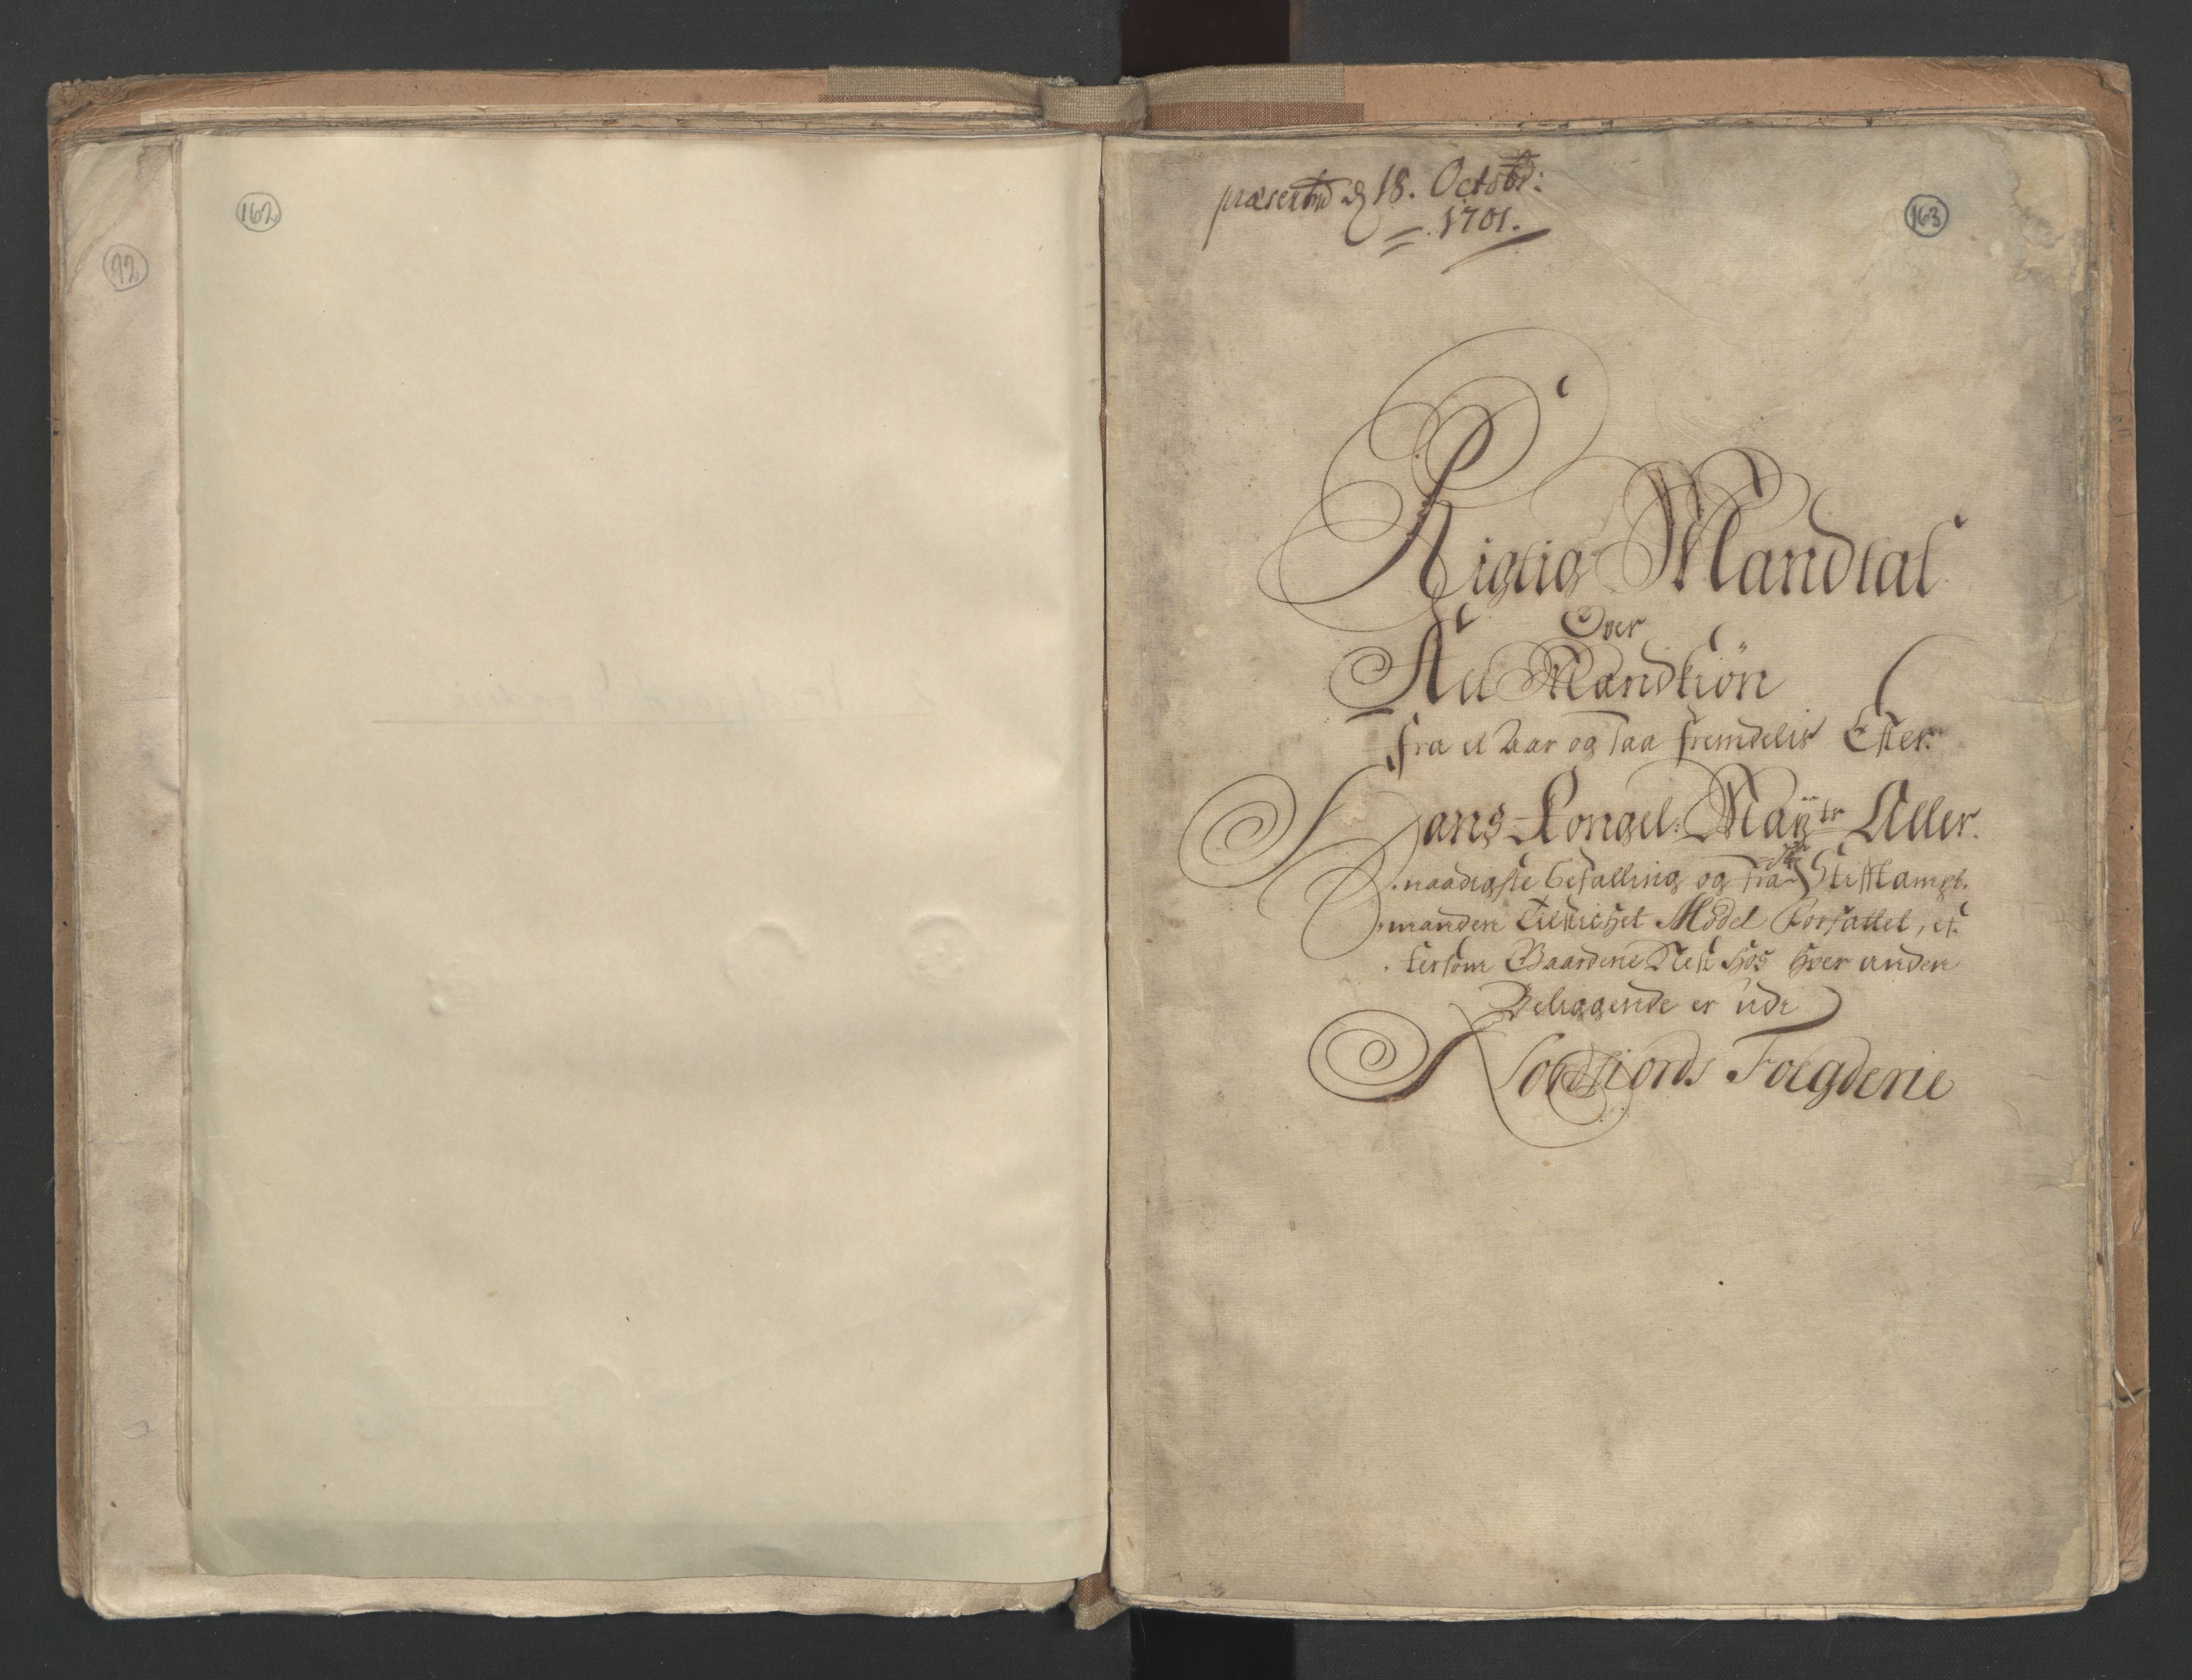 162
92
præsentred d 18. Octobr:
1701.
163
Rigtig Mandtal
Over
All Mandkiön
fra et Aar og saa fremdelis Efter
Hans Kongel: Mayts Aller
naadigste befalling og fra Hr Stiftampt
manden tilskichet Model forfattet, ef
tersom Gaardene Nest hos hver anden
Beliggende er udi
Nordfiords Foegderie